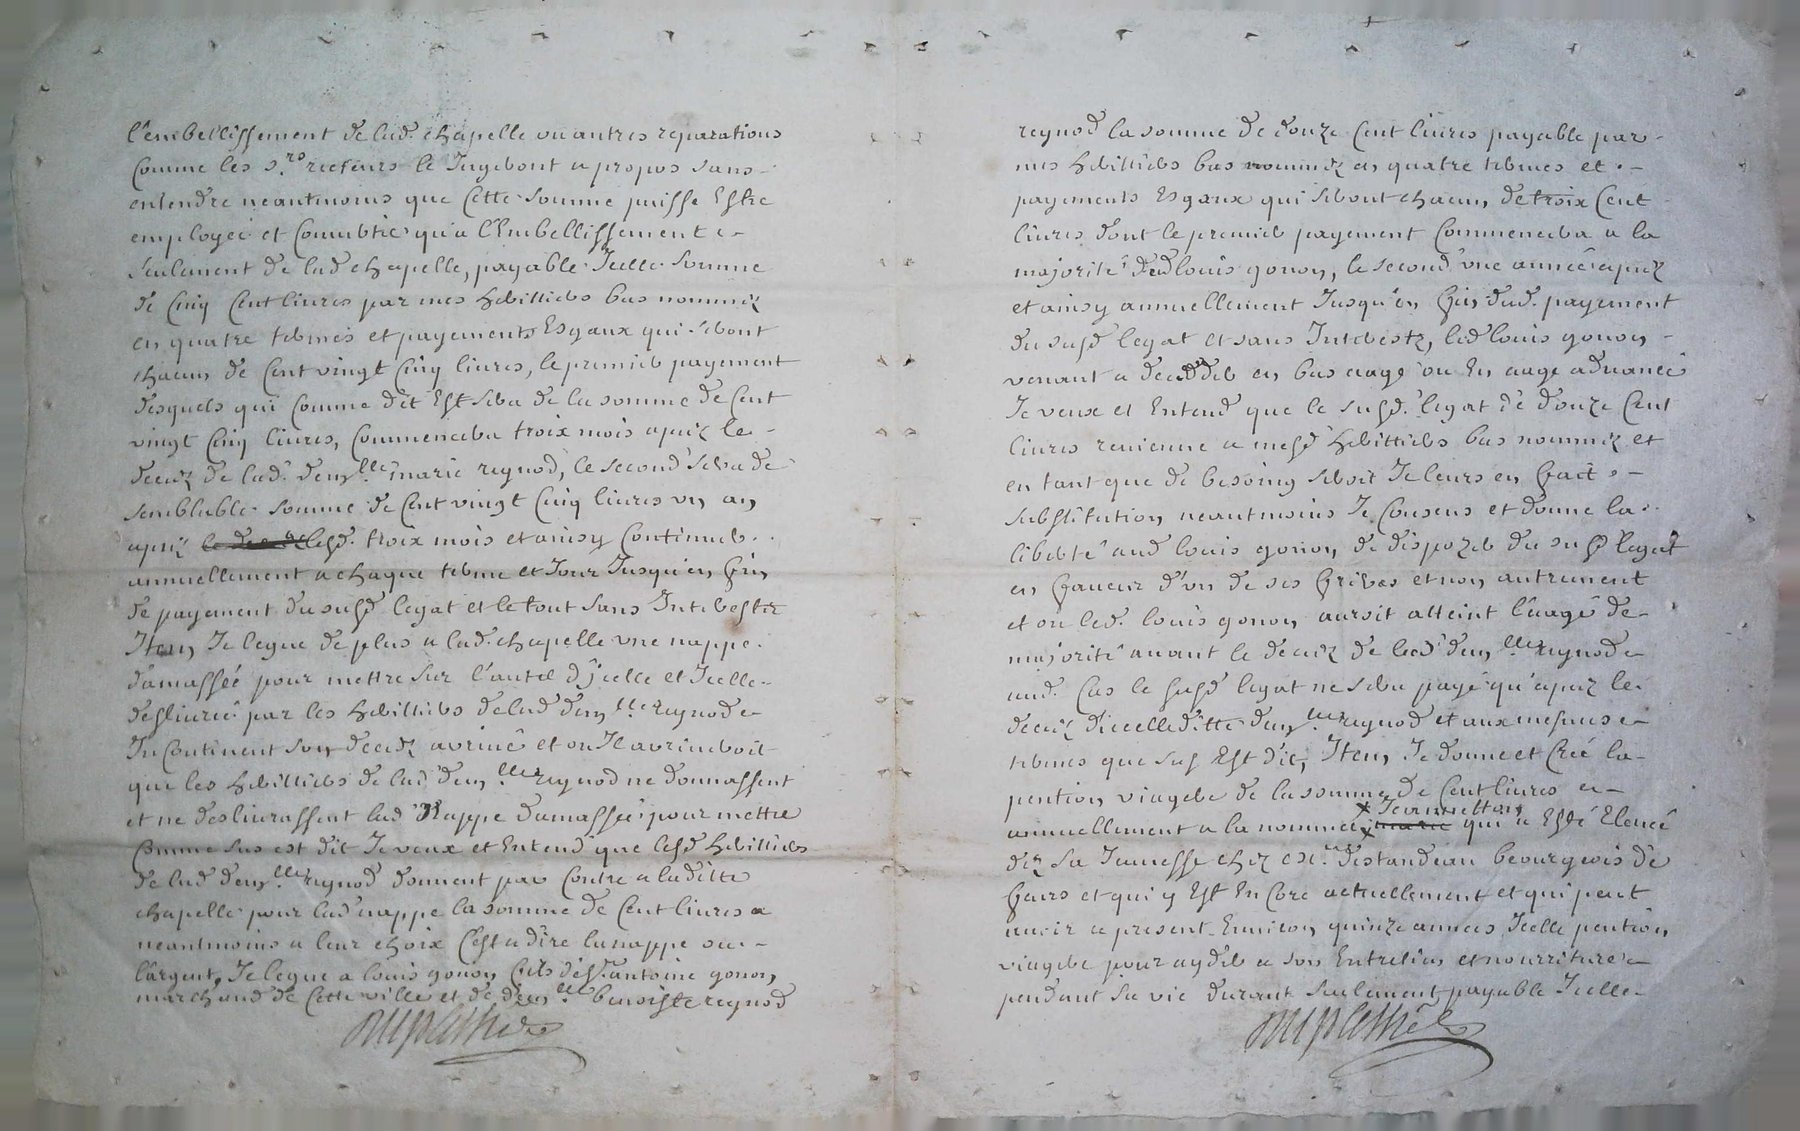 l'embellissement de lad. chapelle ou autres reparations
Comme les s.rs recteurs le Jugeront a propos sans
entendre neantmoins que Cette somme puisse Estre
employée et Convertie qu'a l'Embellissement
seulement de lad chapelle, payable Icelle somme
de Cinq Cent livres par mes heritiers bas nommez
en quatre termes et payements Esgaux qui seront
chacun de Cent vingt Cinq livres, le premier payement
desquels qui Comme dit Est sera de la somme de Cent
vingt Cinq livres, Commencera troix mois aprez le
decez de lad. dem.lle marie reynod, le second sera de
semblable somme de Cent vingt Cinq livres un an
aprez lesd. troix mois et ainsy Continuer
annuellement a chaque terme et Jour Jusqu'en fin
de payement du susd legat et le tout sans Interestz
Item Je legue de plus a lad. chapelle une nappe
damassée pour mettre sur l'autel d'jcelle et Icelle
deslivrée par les heritiers de lad dem.lle reynod
In Continent son decez arrivé et ou Il arriveroit
que les heritiers de lad dem.lle reynod ne donnassent
et ne deslivrassent lad Nappe damassée pour mettre
Comme sus est dit Je veux et Entend que lesd heritiers
de lad dem.lle reynod donnent par Contre a laditte
chapelle pour lad nappe la somme de Cent livres
neantmoins a leur choix C'est a dire la nappe ou
l'argent, Je legue a louis gonon fils de s.r antoine gonon
marchand de Cette ville et de dem.lle benoiste reynod
reynod la somme de douze Cent livres payable par
mes heritiers bas nommez en quatre termes et
payements Esgaux qui seront chacun de troix Cent
livres dont le premier payement Commencera a la
majorité dud louis gonon, le second une année aprez
et ainsy annuellement Jusqu'en fin dud. payement
du susd legat et sans Interestz, led louis gonon
venant a deceder en bas aage ou En aage advancé
Je veux et Entend que le susd. legat de douze Cent
livres revienne a mesd heritiers bas nommez et
en tant que de besoing seroit Je leurs en fait
substitution neantmoins Je Consens et donne la
liberté aud louis gonon de dispozer du susd legat
en faveur d'un de ses freres et non autrement
et ou led. louis gonon auroit atteint l'aage de
majorité avant le decez de lad dem.lle reynod
aud. Cas le susd legat ne sera payé qu'aprez le
decez d'icelle ditte dem.lle reynod et aux mesmes
termes que sus Est dit, Item Je donne et Créé la
pention viagere de la somme de Cent livres
annuellement a la nommée Jeannetton qui a Esté Elevée
dez sa Jeunesse chez destandeau bourgeois de
et qui y Est En Core actuellement et qui peut
avoir a present Environ quinze années, Icelle pention
viagere pour ayder a son Entretien et nourriture
pendant sa vie durant seulement, payable Icelle